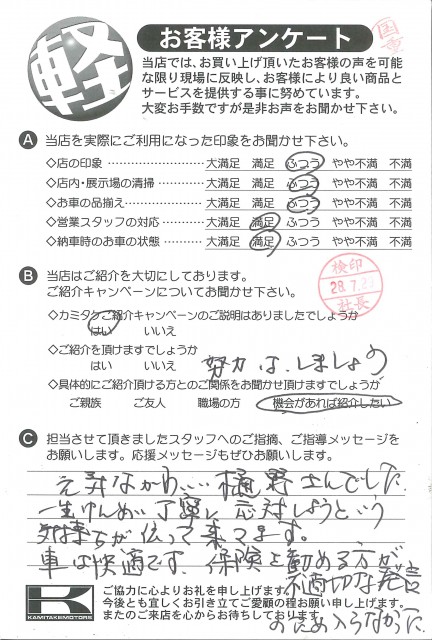 軽
お客様アンケート
当店では、お買い上げ頂いたお客様の声を可能
な限り現場に反映し、お客様により良い商品と
サービスを提供する事に努めています。
大変お手数ですが是非お声をお聞かせ下さい。
A 当店を実際にご利用になった印象をお聞かせ下さい。
◇店の印象 大満足 満足 ふつう やや不満 不満
◇店内・展示場の清掃 大満足 満足 ふつう やや不満 不満
◇お車の品揃え 大満足 満足 ふつう やや不満 不満
◇営業スタッフの対応 大満足 満足 ふつう やや不満 不満
◇納車時のお車の状態 大満足 満足 ふつう やや不満 不満
B 当店はご紹介を大切にしております。
ご紹介キャンペーンについてお聞かせ下さい。
検印
28.7.
社長
◇カミタケご紹介キャンペーンのご説明はありましたでしょうか
はい いいえ
◇ご紹介を頂けますでしょうか
はい いいえ
努力は、しましょう
◇具体的にご紹介頂ける方とのご関係をお聞かせ頂けますでしょうか
ご親族 ご友人 職場の方 機会があれば紹介したい
C 担当させて頂きましたスタッフへのご指摘、ご指導メッセージを
お願いします。応援メッセージもぜひお願いします。
樋野さんでした
一生けんめい丁寧に応対しようという
気持ちが伝って来てます。
車は快適です、保険を勧める方が
不適切な発言
K
KAMITAKEMOTORS
ご協力に心よりお礼を申し上げます。
今後とも宜しくお引き立てご愛顧の程お願い申し上げます。
またのご来店を心からお待ちしております。